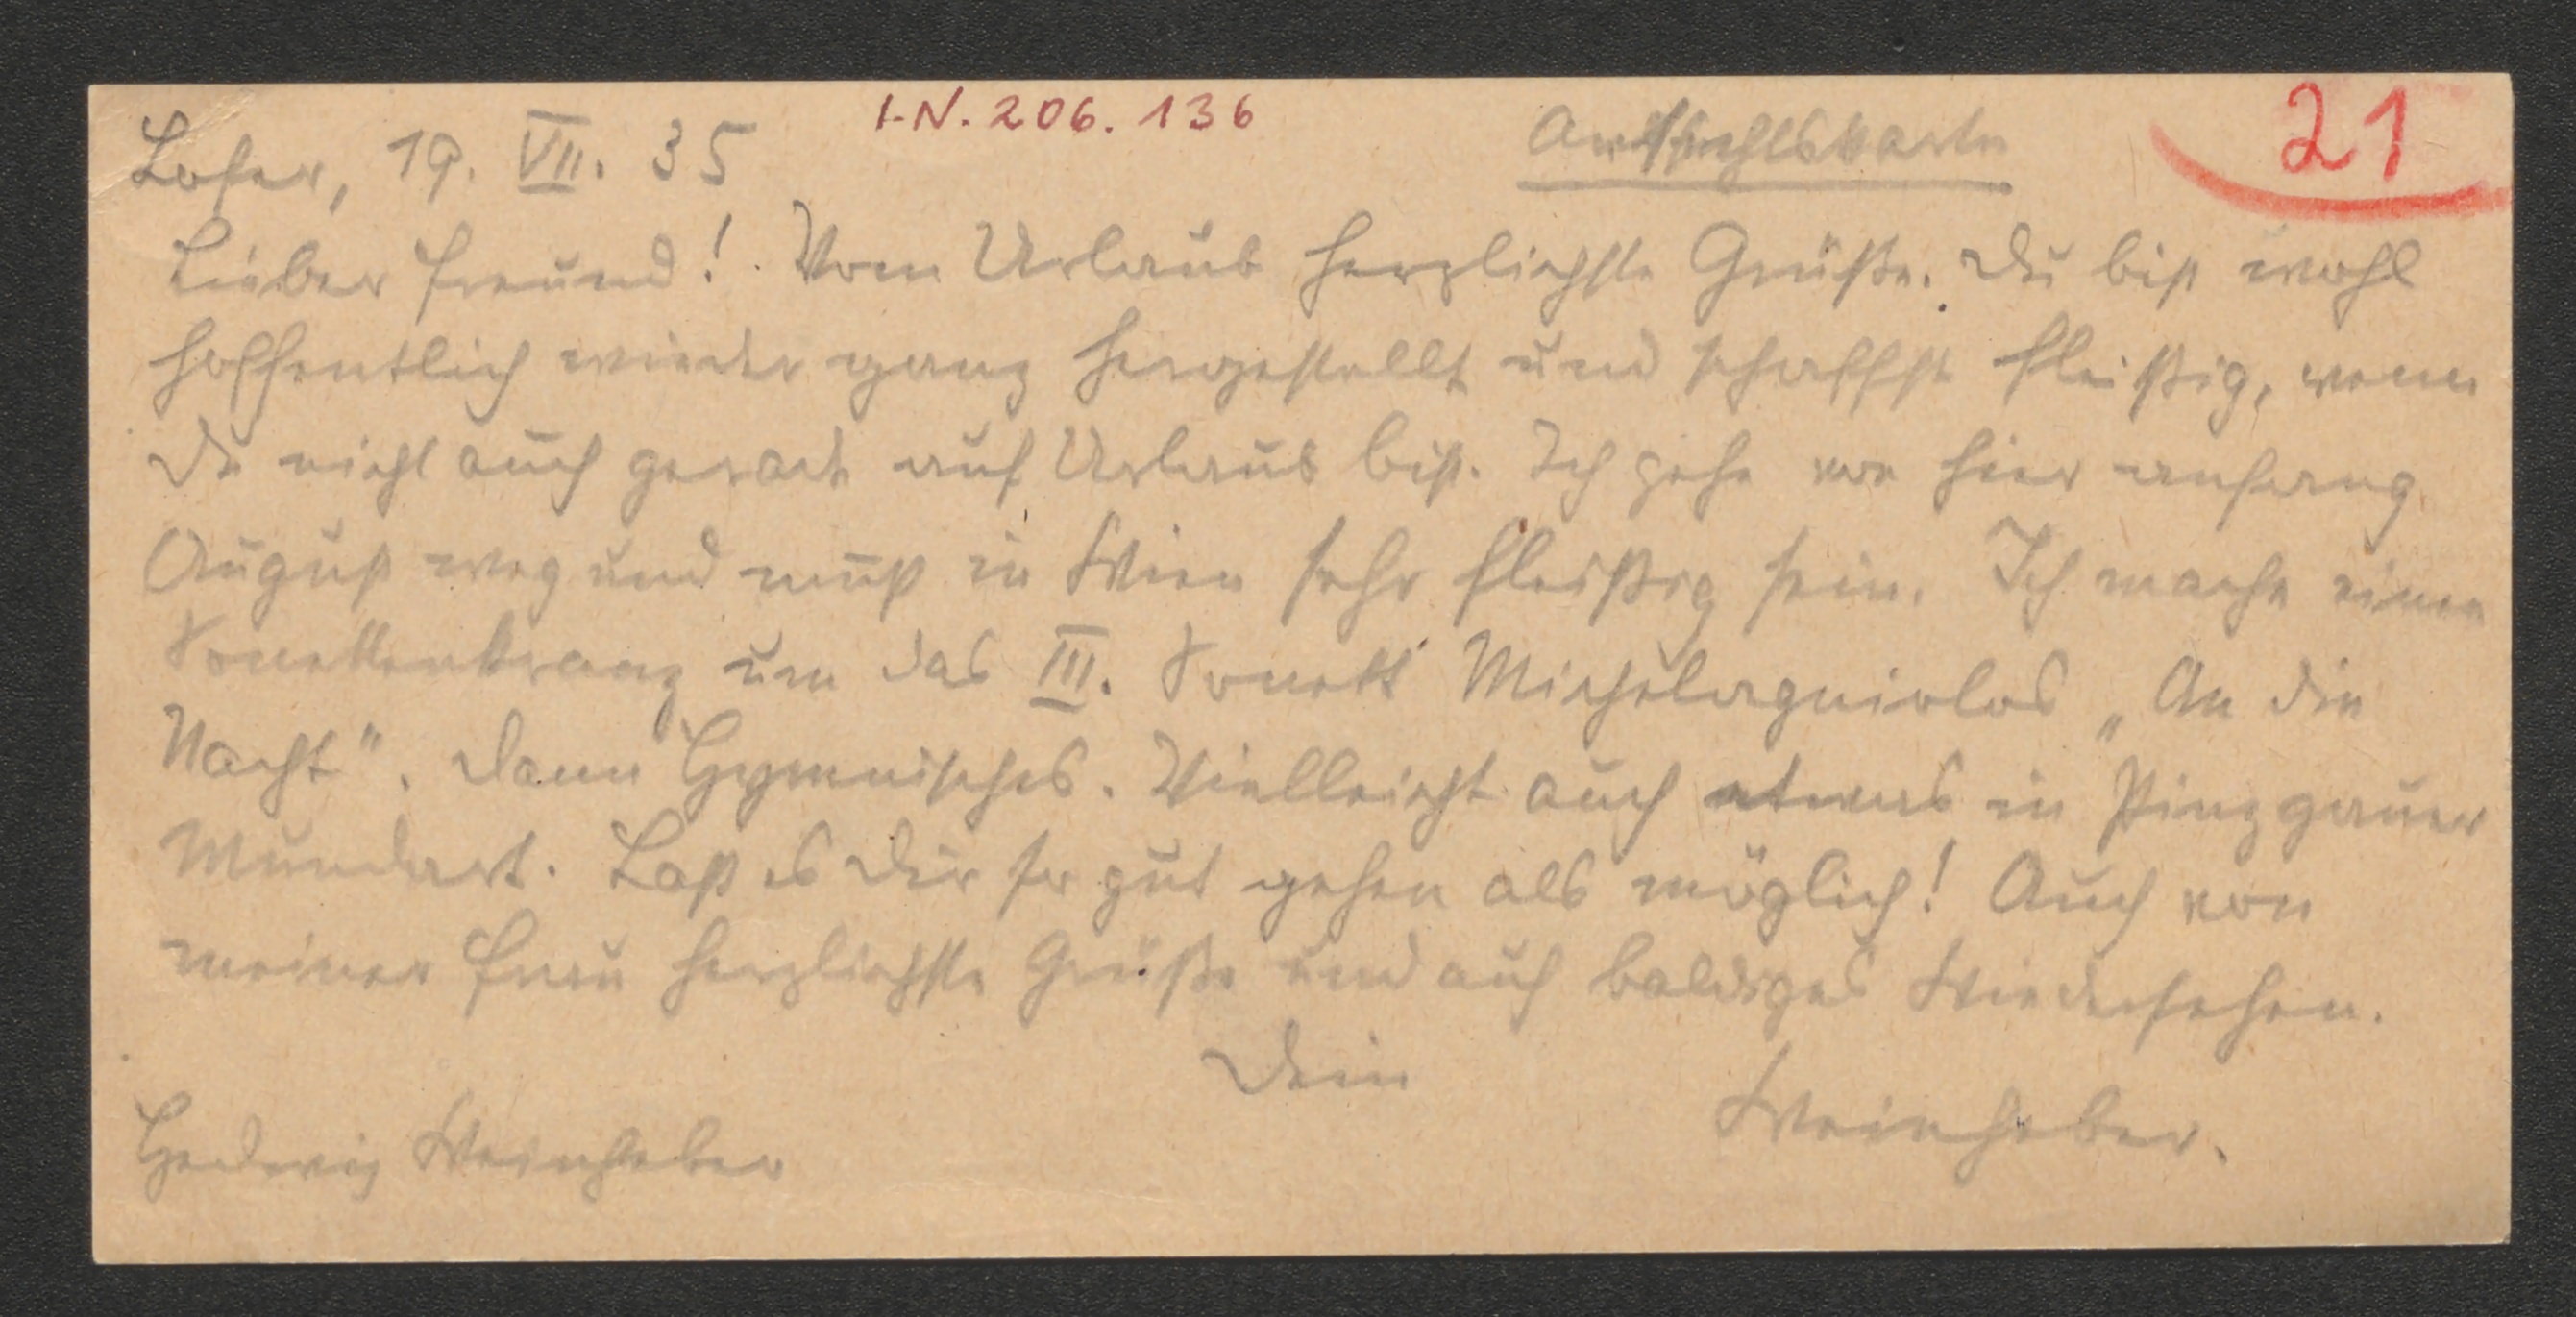 I.N. 206.136
21
Lofer, 19. VII. 35
Ansichtskarte
Lieber Freund! Vom Urlaub herzlichste Grüße. Du bist wohl
hoffentlich wieder ganz hergestellt und schaffst fleißig, wenn
Du nicht auch gerade auf Urlaub bist. Ich gehe von hier anfang
August weg und muß in Wien sehr fleißig sein. Ich mache einen
Sonettenkranz um das III. Sonett Michelagniolos „An die
Nacht". Dann Hymnisches. Vielleicht auch etwas in Pinzgauer
Mundart. Laß es Dir so gut gehen als möglich! Auch von
meiner Frau herzlichste Grüße und auf baldiges Wiedersehen.
Dein
Weinheber.
Hedwig Weinheber